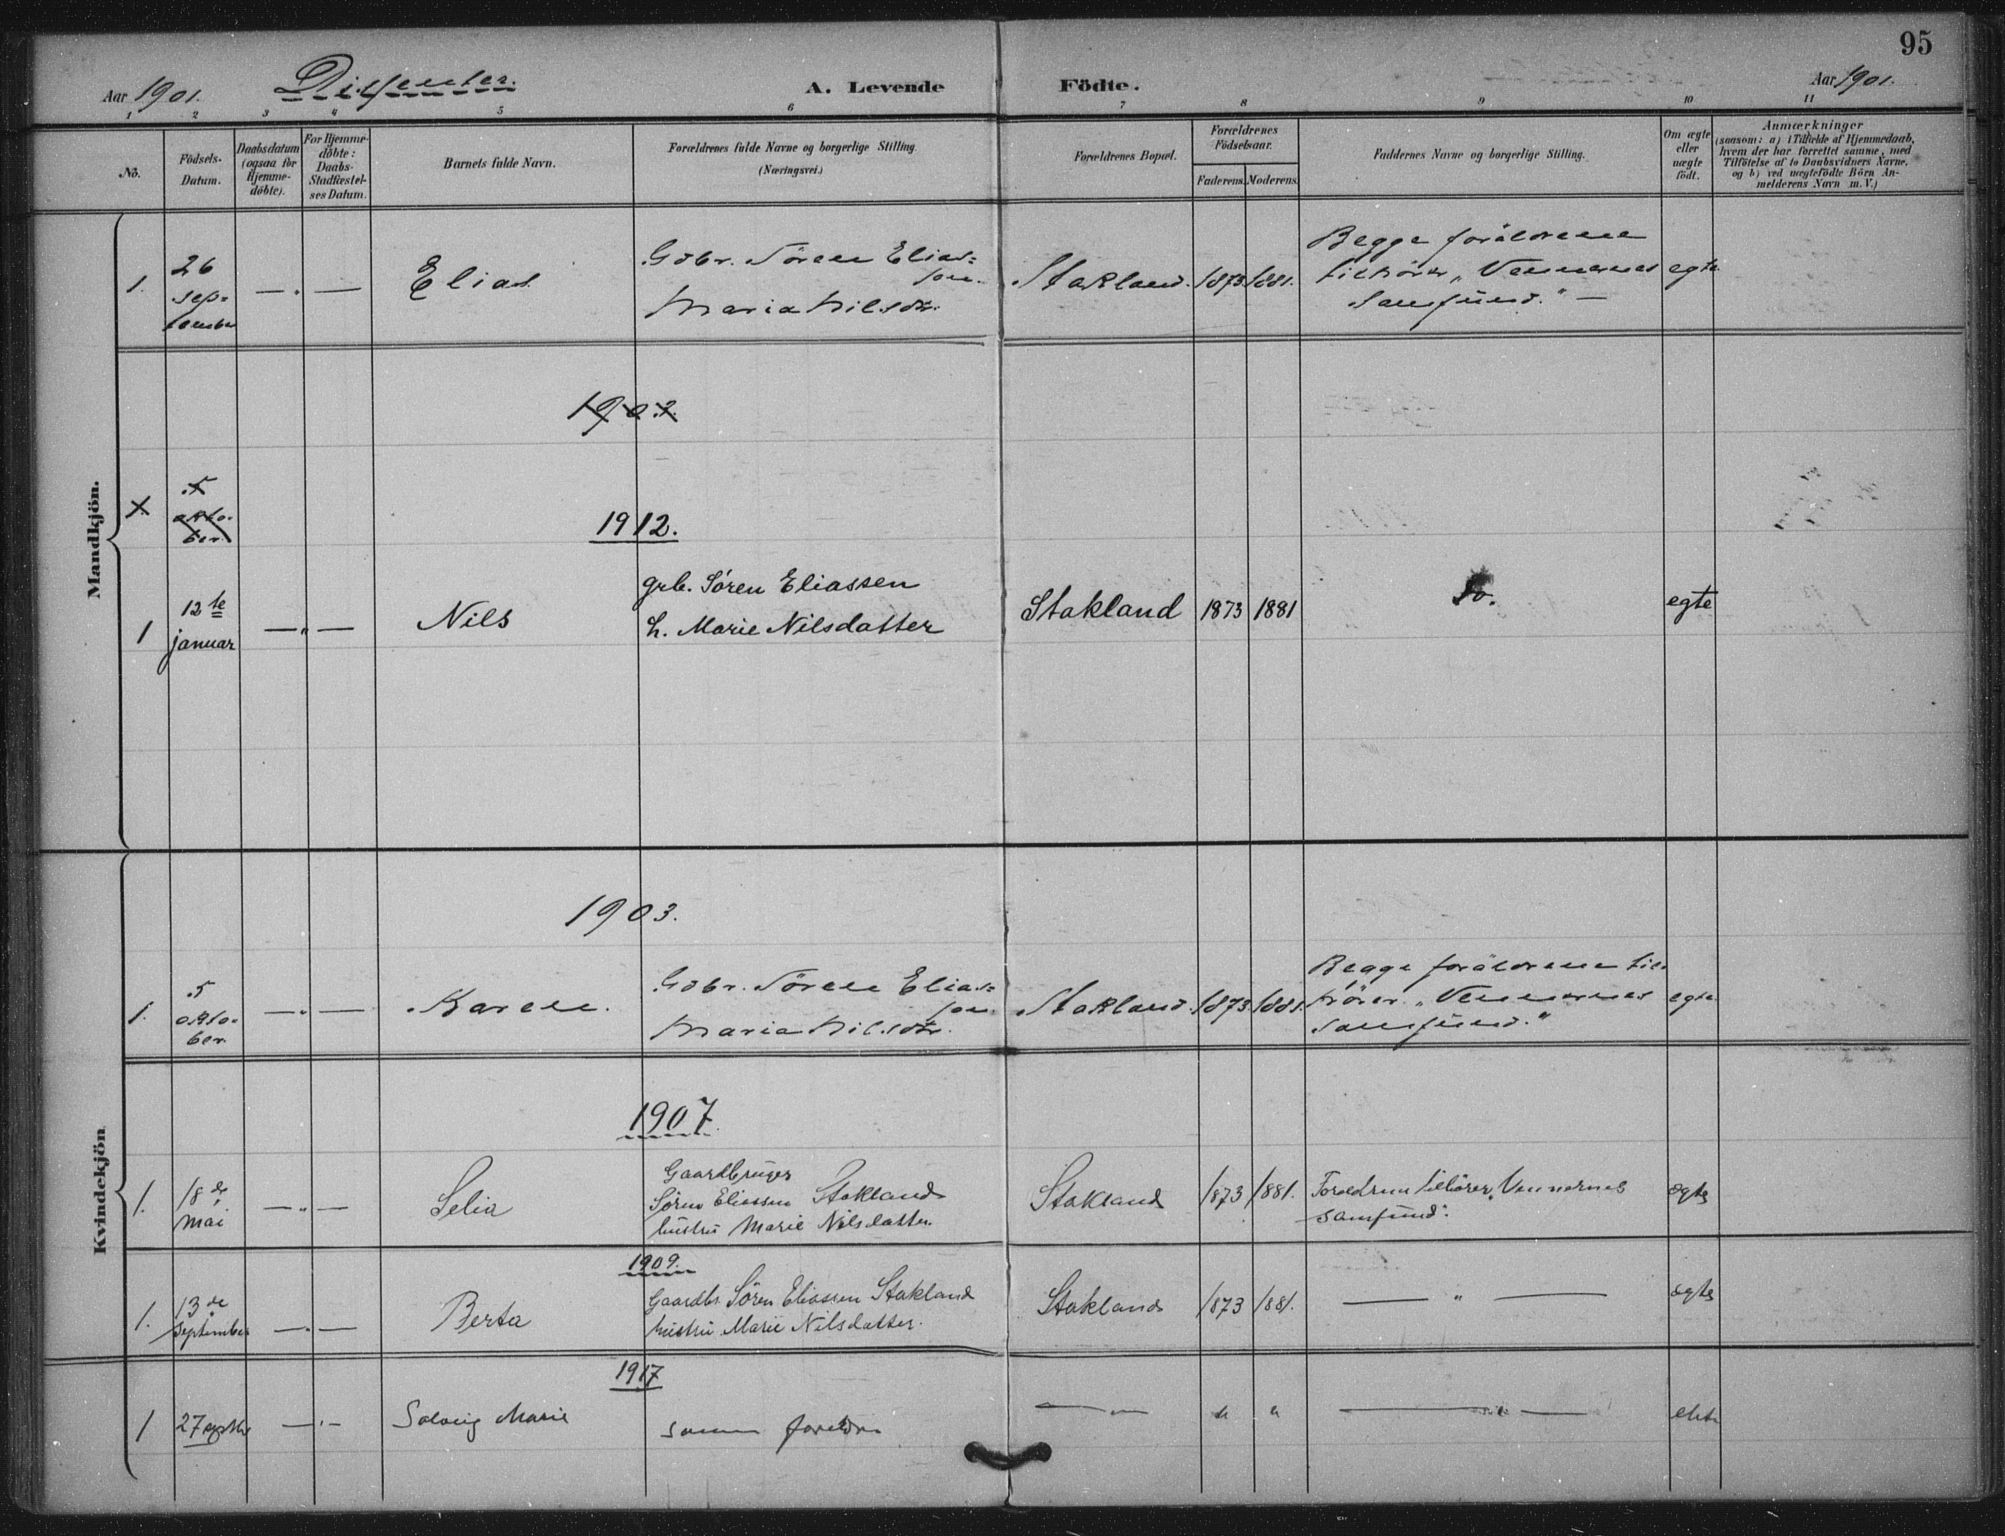 95
Aar 1901. Dissenter. A. Levende Födte. Aar 1901.
1 2 3 4 5 6 7 8 9 10 11
No.
Födsels-
Datum.
Daabsdatum
(ogsaa for
Hjemme-
döbte).
For Hjemme-
döbte:
Daabs-
Stadfæstel-
ses Datum.
Barnets fulde Navn.
Forældrenes fulde Navne og borgerlige Stilling.
(Næringsvei.)
Forældrenes Bopæl.
Forældrenes
Födselsaar.
Faderens. Moderens.
Faddernes Navne og borgerlige Stilling.
Om ægte
eller
uægte
födt.
Anmærkninger
(saasom: a) i Tilfælde af Hjemmedaab,
hvem der har forrettet samme, med
Tilföielse af to Daabsvidners Navne,
og b) ved uægtefödte Börn An-
melderens Navn m. V.)
Mandkjön.
1. 26
sep-
tember
— " —
Elias
Gdbr. Sören Elias=
sen.
Maria Nilsdtr.
Stakland. 1873 1881.
Begge foräldrene
tilhörer „Vennernes
Samfund." —
egte
1902.
X 5
okto-
ber.
1912.
1 12te
januar
— " —
Nils
grb. Sören Eliassen
h. Marie Nilsdatter
Stakland 1873 1881
Do.
egte
Kvindekjön
1903.
1. 5
okto-
ber.
— " —
Karen.
Gdbr. Sören Elias=
sen.
Maria Nilsdtr.
Stakland. 1873 1881.
Begge foräldrene til-
hörer „Vennernes
Samfund."
egte
1907
1. 18de
mai
— " —
Selia
Gaardbruger
Søren Eliassen Stakland
hustru Marie Nilsdatter.
Stakland 1873 1881.
Forældrene tilhører „Vennernes
samfund".
ægte
1909.
1. 13de
september
— " —
Berta
Gaardbr Søren Eliassen Stakland
hustru Marie Nilsdatter.
Stakland 1873 1881.
— " —
ægte
1917
1 27
— " —
Solveig Marie
samme foreldre
— " — " " — " —
ekte